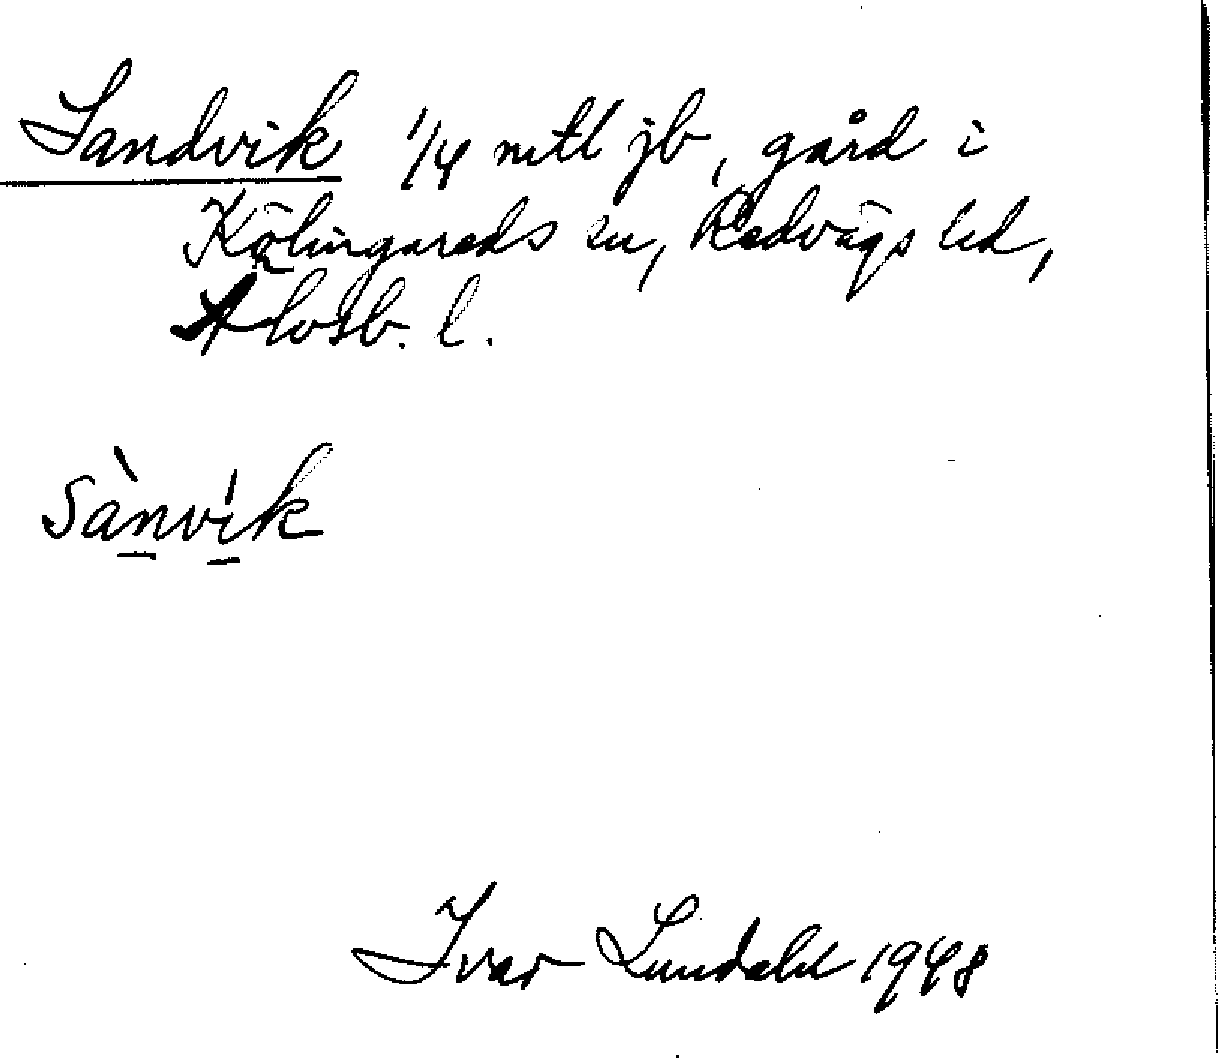 Sandvik 1/4 mtl jb, gård i
Kölingareds sn, Redvägs hd,
Älvsb. l.
sànvík
Ivar Lundahl 1948